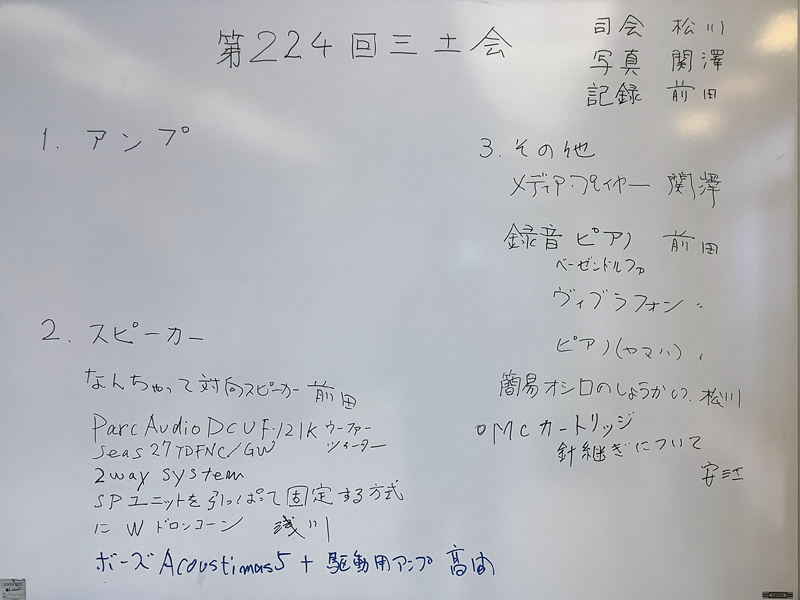 第224回三土会
司会 松川
写真 関澤
記録 前田
1. アンプ
2. スピーカー
なんちゃって対向スピーカー 前田
Parc Audio DCU F-121K ウーファー
Seas 27TDFNC/GW ツィーター
2way system
SPユニットを引っぱって固定する方式
に W ドロンコーン 浅川
ボーズ Acoustimas5 + 駆動用アンプ 高田
3. その他
メディアプレイヤー 関澤
録音 ピアノ 前田
ベーゼンドルファ
ヴィブラフォン 〃
ピアノ(ヤマハ) 〃
簡易オシロのしょうかい. 松川
○MCカートリッジ
針継ぎについて
安江